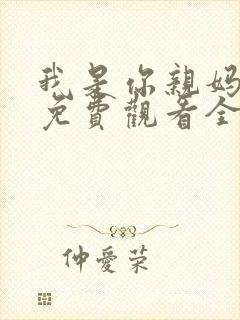 我是你親媽
免費觀看全
仲愛荣